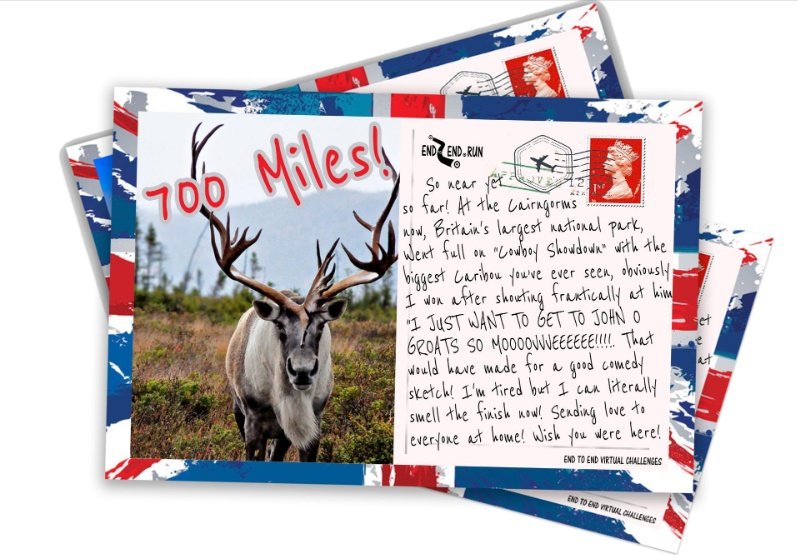 700 Miles!
END END RUN
1ST
So near yet
so far! At the Cairngorms
now, Britain's largest national park,
Went full on "Cowboy Showdown" with the
biggest Caribou you've ever seen, obviously
I won after shouting frantically at him
"I JUST WANT TO GET TO JOHN O
GROATS SO MOOOOVVVEEEEEE!!!!. That
would have made for a good comedy
sketch! I'm tired but I can literally
smell the finish now! Sending love to
everyone at home! Wish you were here!
END TO END VIRTUAL CHALLENGES
et
at
END TO END VIRTUAL CHALLENGES